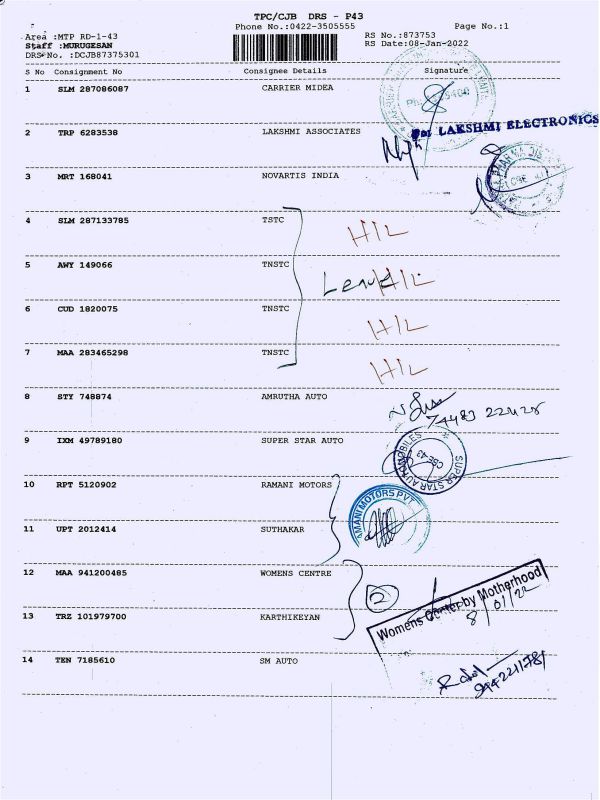 TPC/CJB DRS - P43
Phone No.:0422-3505555
Page No.:1
Area :MTP RD-1-43
RS No.:873753
Staff :MURUGESAN
RS Date:08-Jan-2022
DRS No. :DCJB87375301
S No Consignment No Consignee Details Signature
1 SLM 287086087 CARRIER MIDEA
2 TRP 6283538 LAKSHMI ASSOCIATES
For LAKSHMI ELECTRONICS
3 MRT 168041 NOVARTIS INDIA
4 SLM 287133785 TSTC H/L
5 AWY 149066 TNSTC Leave H/L
6 CUD 1820075 TNSTC H/L
7 MAA 283465298 TNSTC H/L
8 STY 748874 AMRUTHA AUTO
74483 22428
9 IXM 49789180 SUPER STAR AUTO
SUPER STAR AUTOMOBILES
CBE-43
10 RPT 5120902 RAMANI MOTORS
RAMANI MOTORS PVT
11 UPT 2012414 SUTHAKAR
12 MAA 941200485 WOMENS CENTRE
2
Womens Center by Motherhood
8/01/22
13 TRZ 101979700 KARTHIKEYAN
14 TEN 7185610 SM AUTO